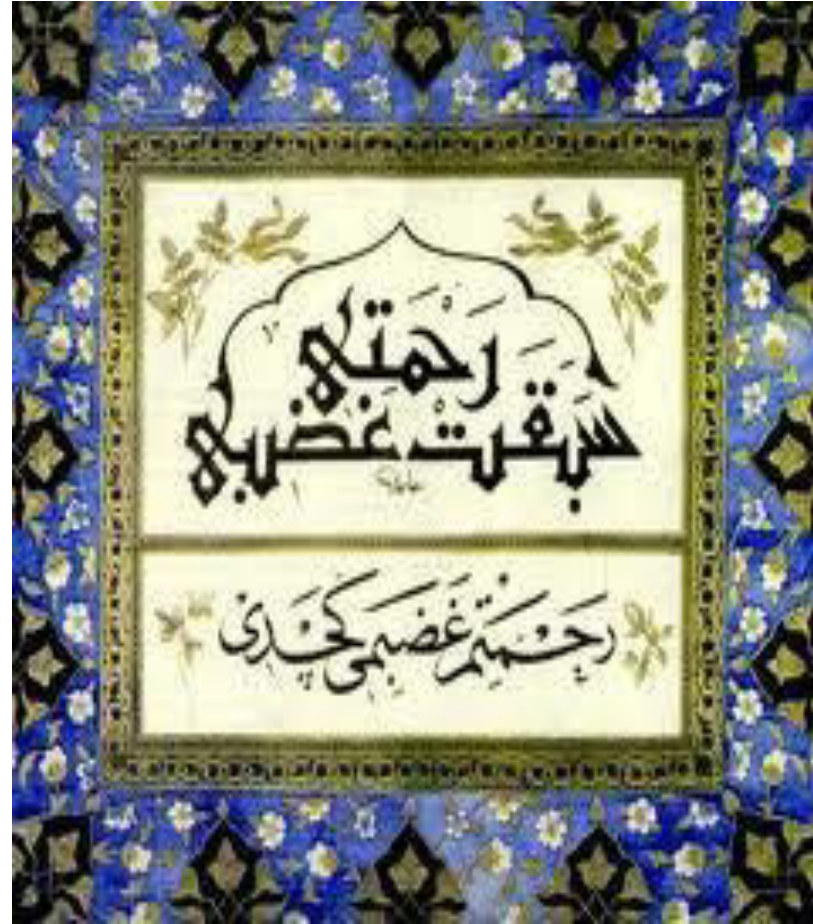 رَحْمَتِي
سَبَقَتْ غَضَبِي
رحمتم غضبمی کچدی